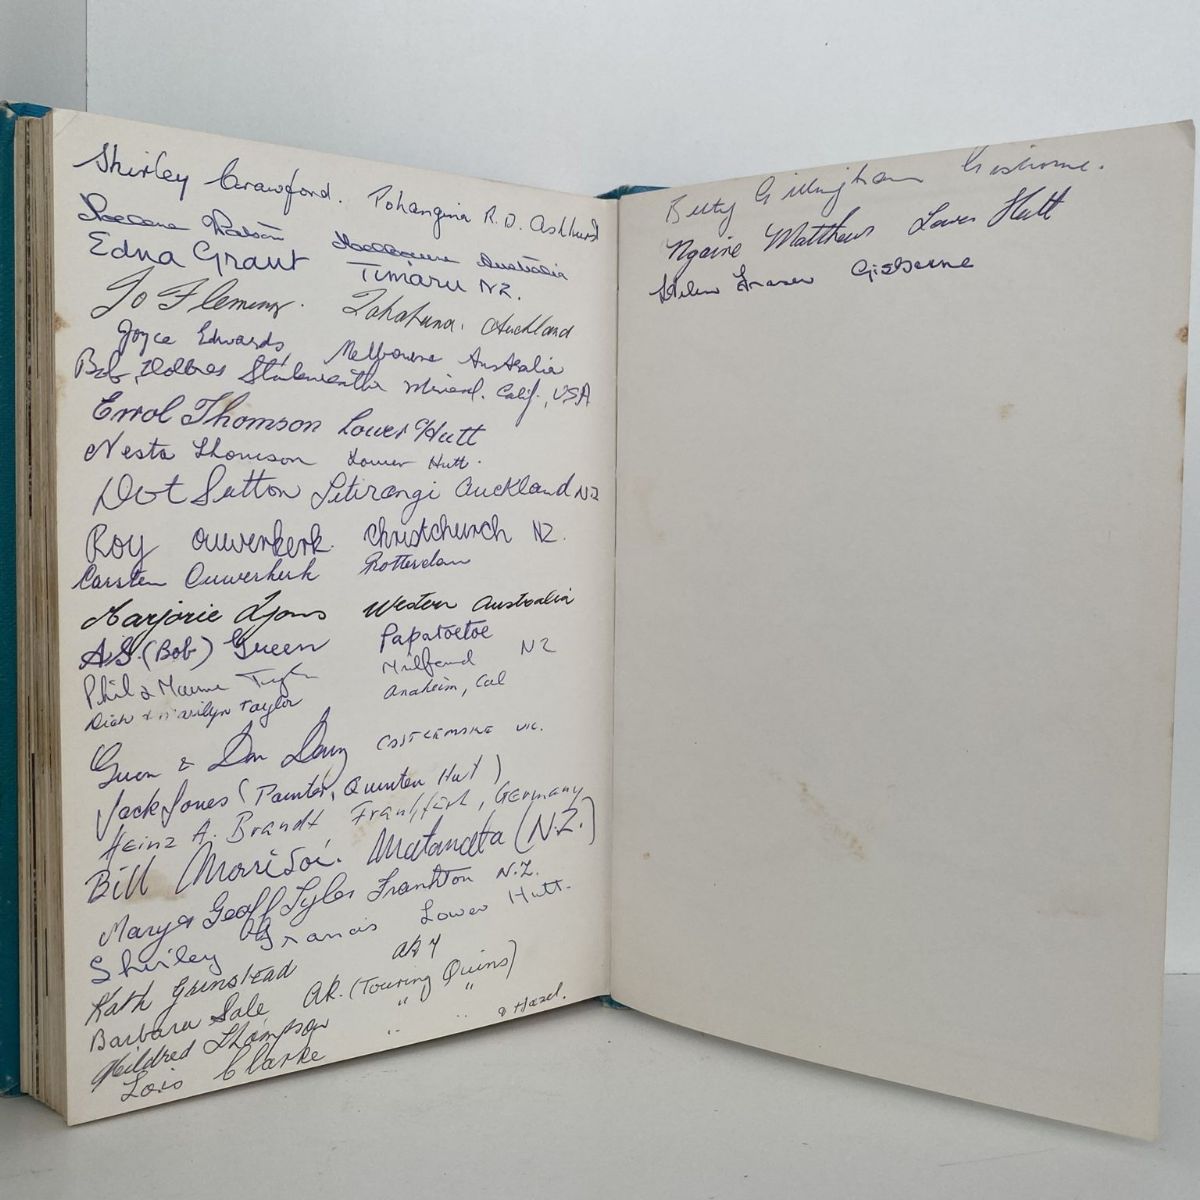 Shirley Crawford. Pohangina R.D. Ashhurst
Melbourne Australia
Edna Grant Timaru NZ.
Jo Fleming. Takapuna. Auckland
Joyce Edwards Melbourne Australia
Bob, Dolores Calif., USA
Errol Thomson Lower Hutt
Nesta Thomson Lower Hutt.
Dot Sutton Titirangi Auckland NZ
Roy Ouwerkerk. Christchurch NZ.
Carsten Ouwerkerk Rotterdam
Marjorie Lyons Western Australia
A.G. (Bob) Green Papatoetoe
Phil & Milford NZ
Dick & Marilyn Taylor Anaheim, Cal
& Don Castlemaine Vic.
Jack Jones (Painter, Quinten Hut)
Heinz A. Brandt Frankfurt, Germany
Bill Matamata (N.Z.)
Mary & Geoff Tyler Frankton N.Z.
Shirley Francis Lower Hutt.
Kath Grinstead
Barbara Sale AK. (Touring Quins)
Mildred Thompson " "
Lois Clarke " " & Hazel.
Betty Gillingham Gisborne.
Ngaire Matthews Lower Hutt
Helen Fraser Gisborne